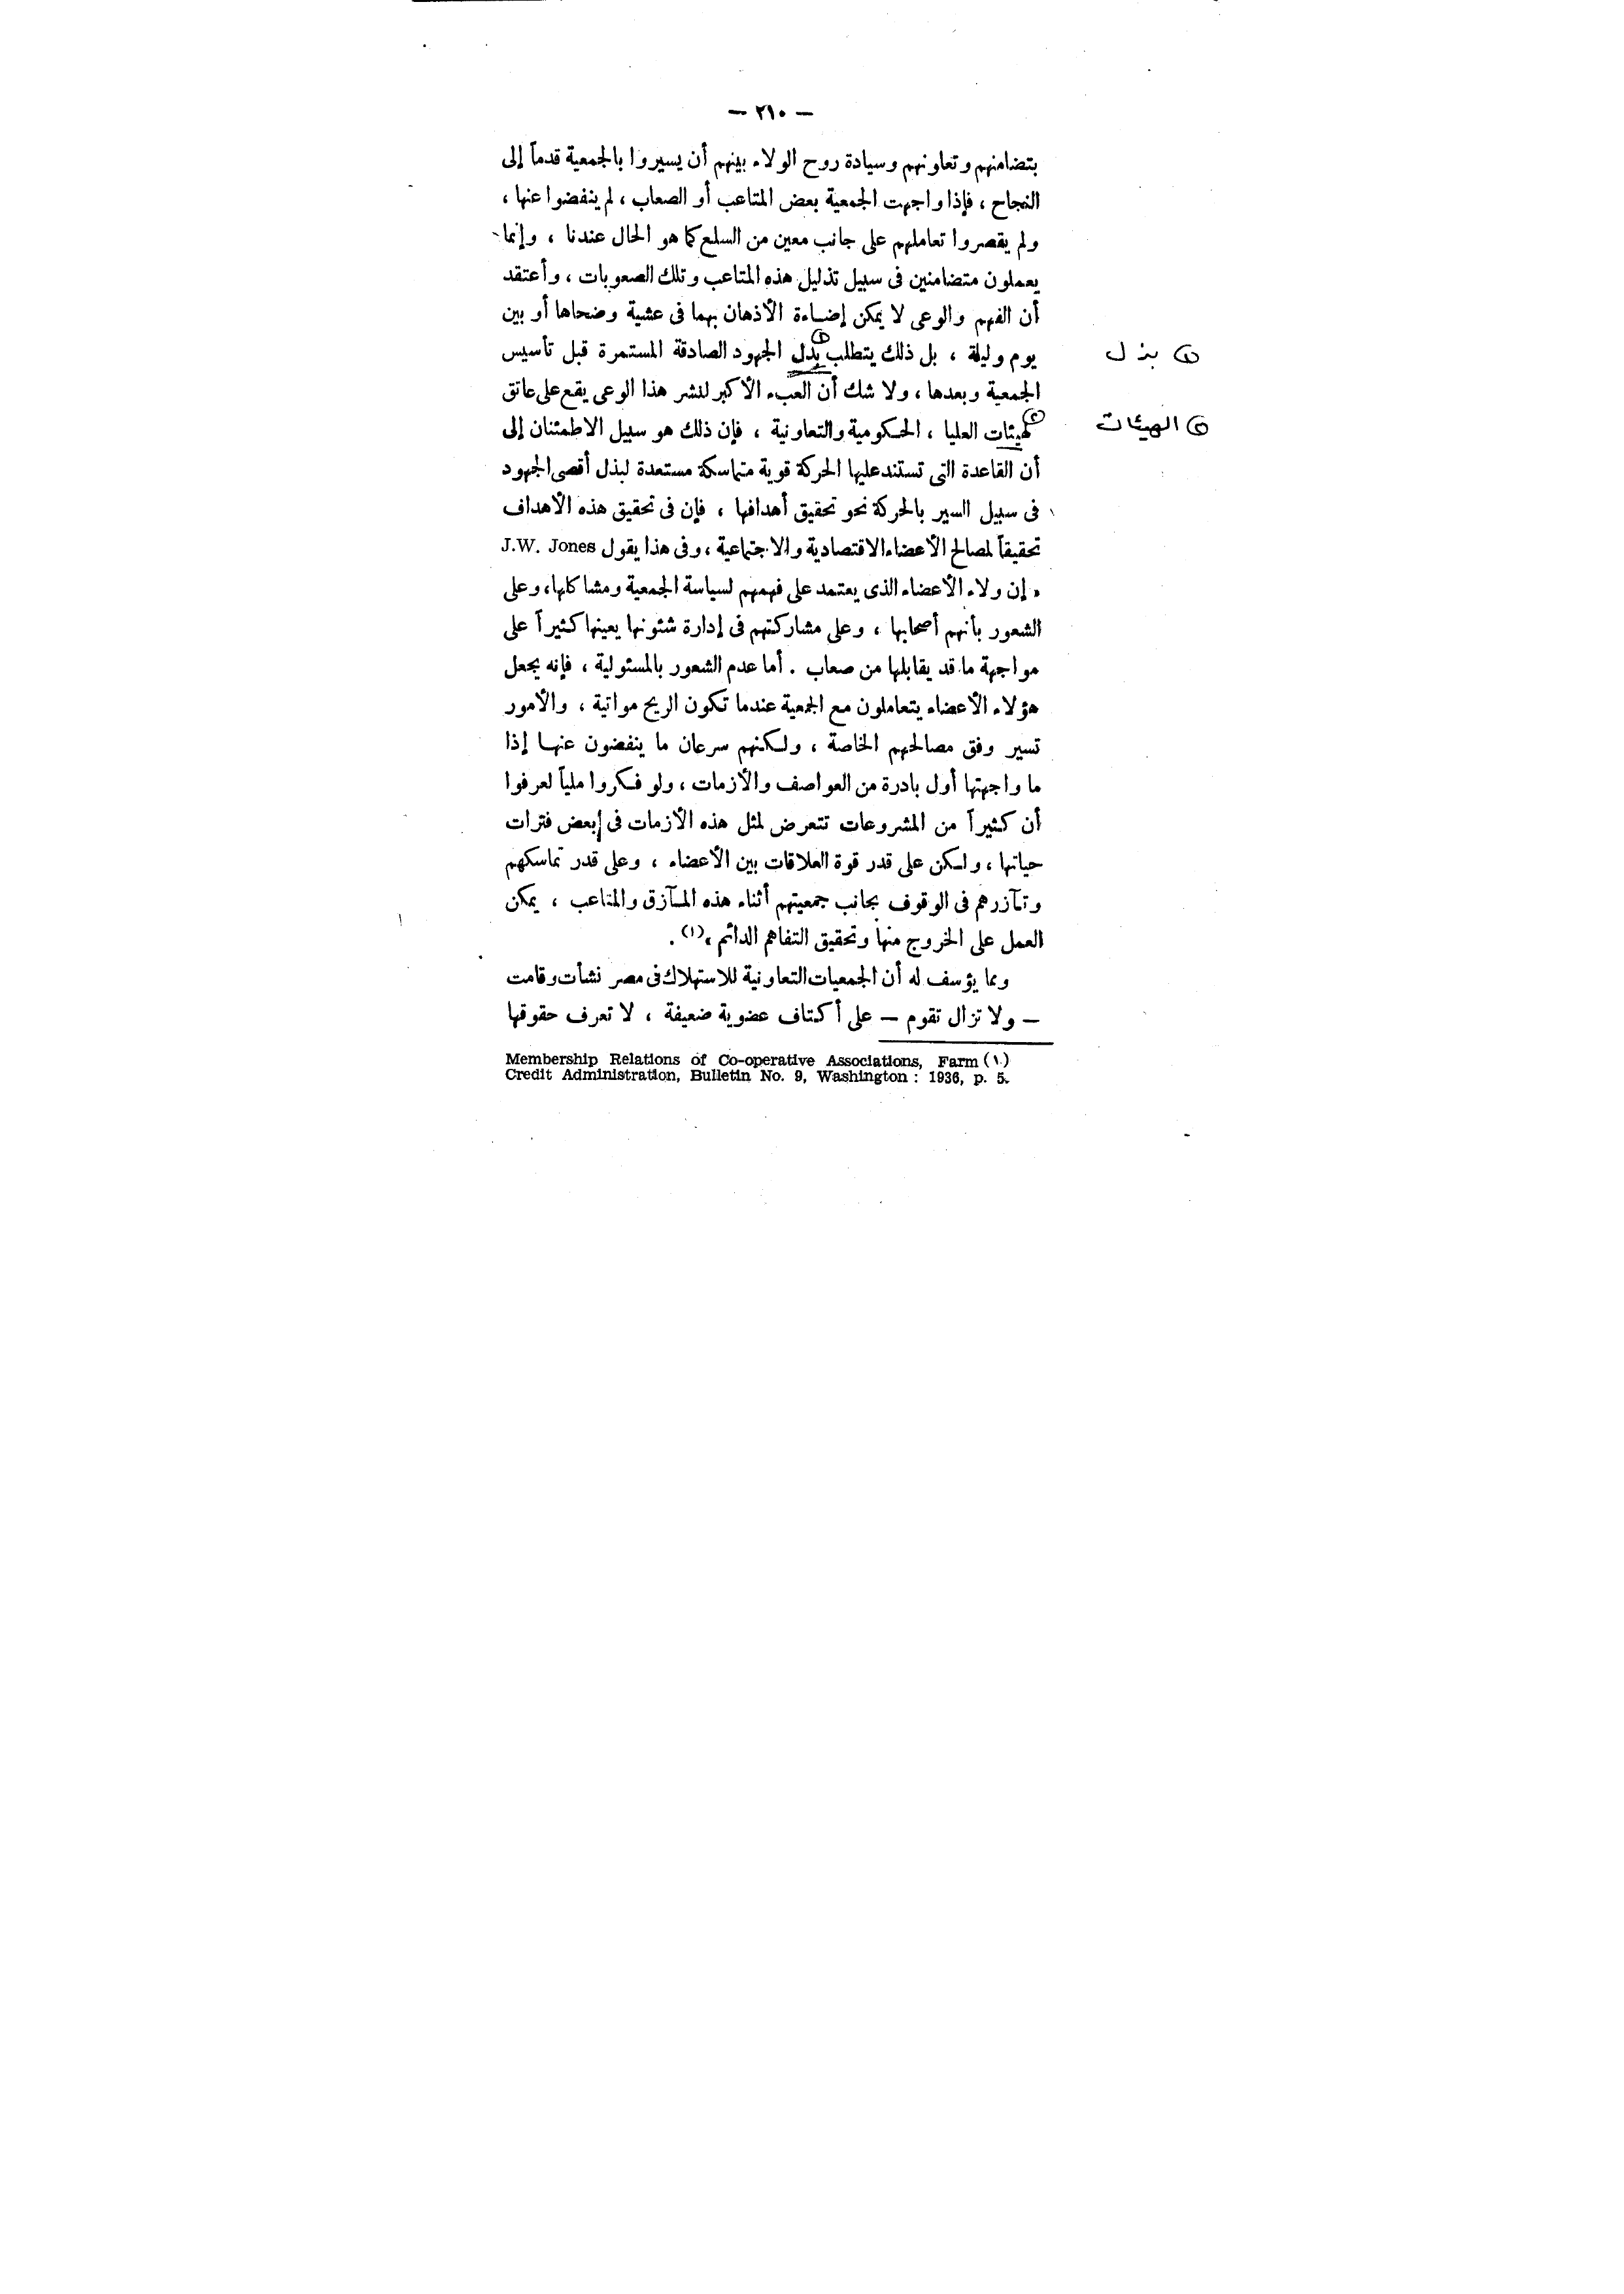 — ٢١٠ —
بتضامنهم وتعاونهم وسيادة روح الولاء بينهم أن يسيروا بالجمعية قدماً إلى
النجاح ، فإذا واجهت الجمعية بعض المتاعب أو الصعاب ، لم ينفضوا عنها ،
ولم يقصروا تعاملهم على جانب معين من السلع كما هو الحال عندنا ، وإنما
يعملون متضامنين فى سبيل تذليل هذه المتاعب وتلك الصعوبات ، وأعتقد
أن الفهم والوعى لا يمكن إضاءة الأذهان بهما فى عشية وضحاها أو بين
يوم وليلة ، بل ذلك يتطلب بدل الجهود الصادقة المستمرة قبل تأسيس
① بذل
الجمعية وبعدها ، ولا شك أن العبء الأكبر لنشر هذا الوعى يقع على عاتق
كهيئات العليا ، الحكومية والتعاونية ، فإن ذلك هو سبيل الاطمئنان إلى
② الهيئات
أن القاعدة التى تستند عليها الحركة قوية متماسكة مستعدة لبذل أقصى الجهود
فى سبيل السير بالحركة نحو تحقيق أهدافها ، فإن فى تحقيق هذه الأهداف
تحقيقاً لمصالح الأعضاء الاقتصادية والاجتماعية ، وفى هذا يقول J.W. Jones
« إن ولاء الأعضاء الذى يعتمد على فهمهم لسياسة الجمعية ومشاكلها، وعلى
الشعور بأنهم أصحابها ، وعلى مشاركتهم فى إدارة شئونها يعينها كثيراً على
مواجهة ما قد يقابلها من صعاب . أما عدم الشعور بالمسئولية ، فإنه يجعل
هؤلاء الأعضاء يتعاملون مع الجمعية عندما تكون الريح مواتية ، والأمور
تسير وفق مصالحهم الخاصة ، ولكنهم سرعان ما ينفضون عنها إذا
ما واجهتها أول بادرة من العواصف والأزمات ، ولو فكروا ملياً لعرفوا
أن كثيراً من المشروعات تتعرض لمثل هذه الأزمات فى بعض فترات
حياتها ، ولكن على قدر قوة العلاقات بين الأعضاء ، وعلى قدر تماسكهم
وتآزرهم فى الوقوف بجانب جمعيتهم أثناء هذه المآزق والمتاعب ، يمكن
العمل على الخروج منها وتحقيق التفاهم الدائم »(١) .
ومما يؤسف له أن الجمعيات التعاونية للاستهلاك فى مصر نشأت وقامت
— ولا تزال تقوم — على أكتاف عضوية ضعيفة ، لا تعرف حقوقها
(١) Membership Relations of Co-operative Associations, Farm
Credit Administration, Bulletin No. 9, Washington : 1936, p. 5.